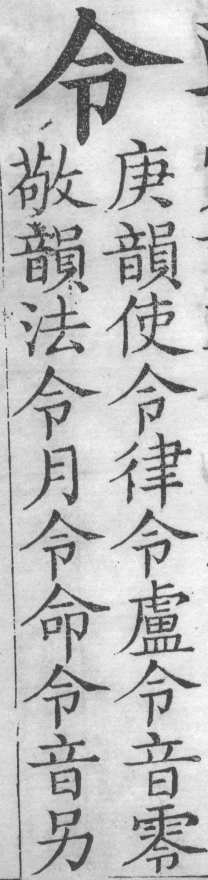 令
庚韻使令律令盧令音零
敬韻法令月令命令音另